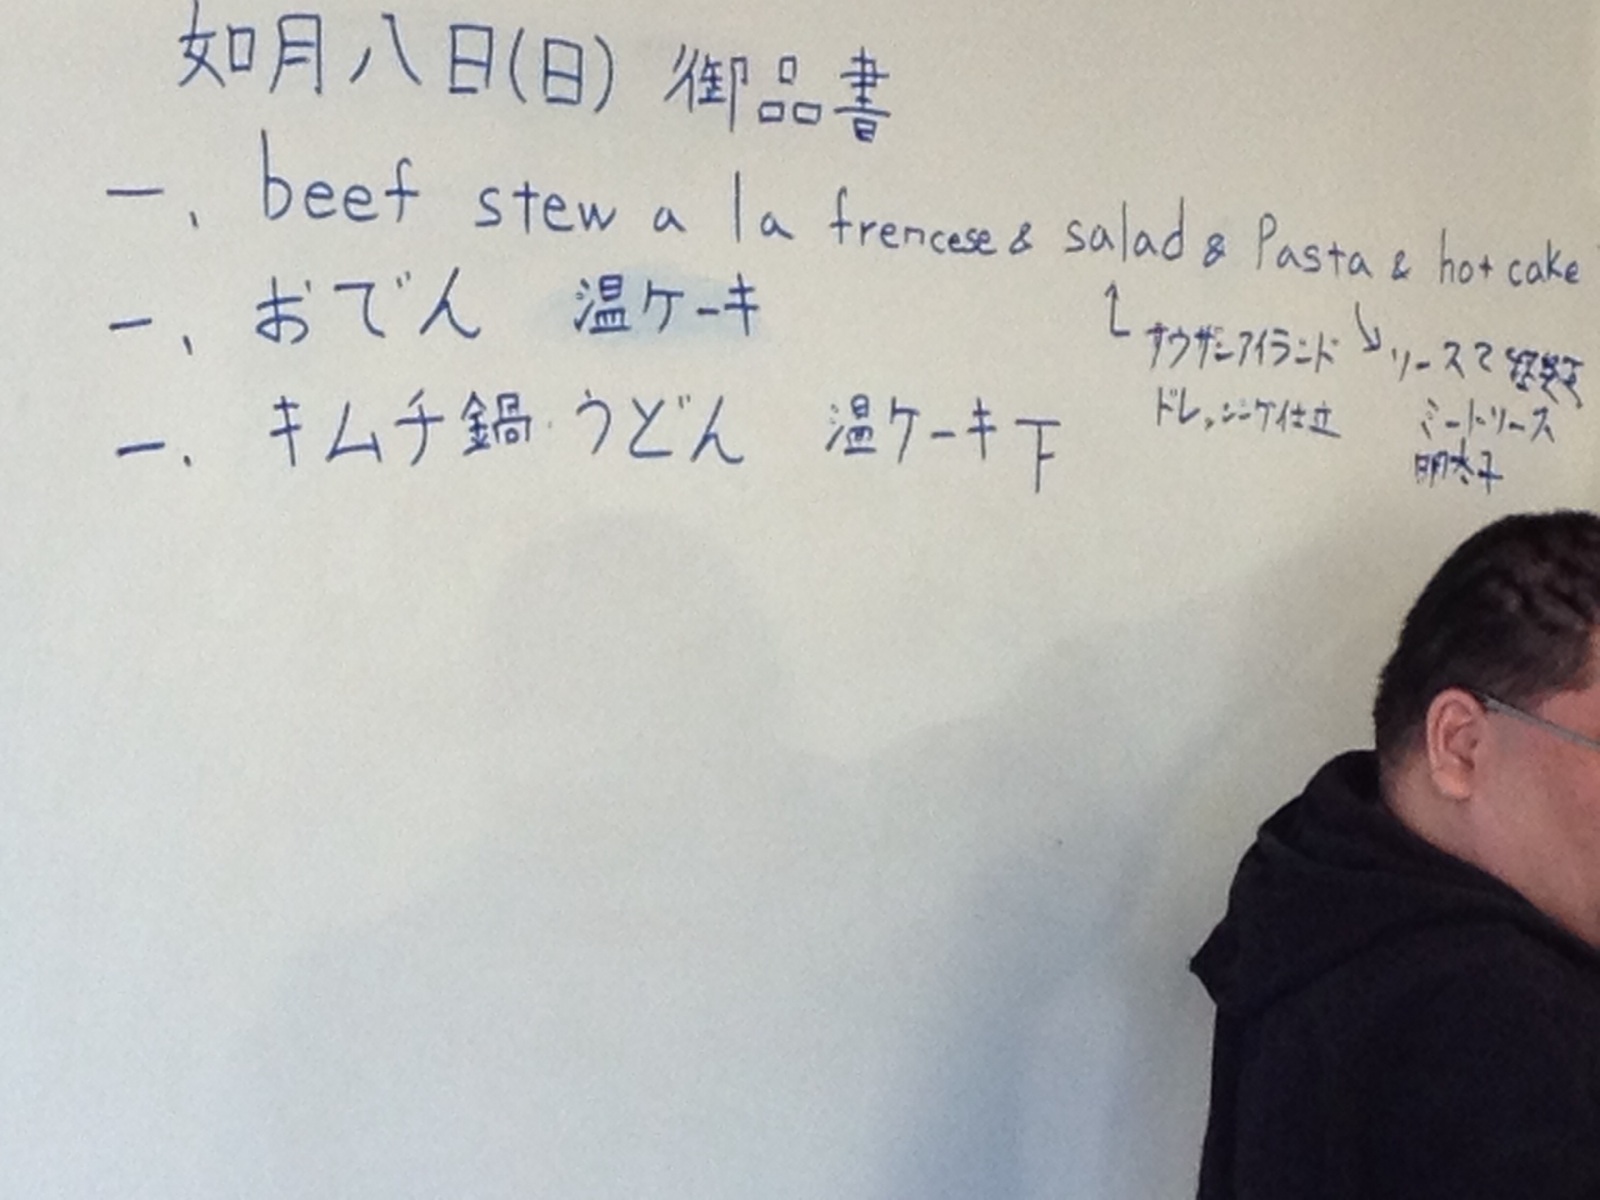 如月八日(日) 御品書
一、beef stew a la frencese & salad & Pasta & hot cake
一、おでん 温ケーキ
一、キムチ鍋・うどん 温ケーキ下
サウザンアイランド
ドレッシング仕立
ソースで
ミートソース
明太子